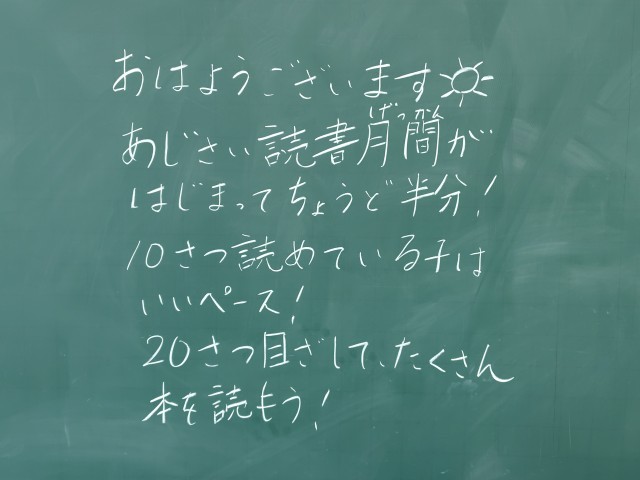 おはようございます☀
あじさい読書月間が
げっかん
はじまってちょうど半分!
10さつ読めている子は
いいペース!
20さつ目ざして、たくさん
本を読もう!